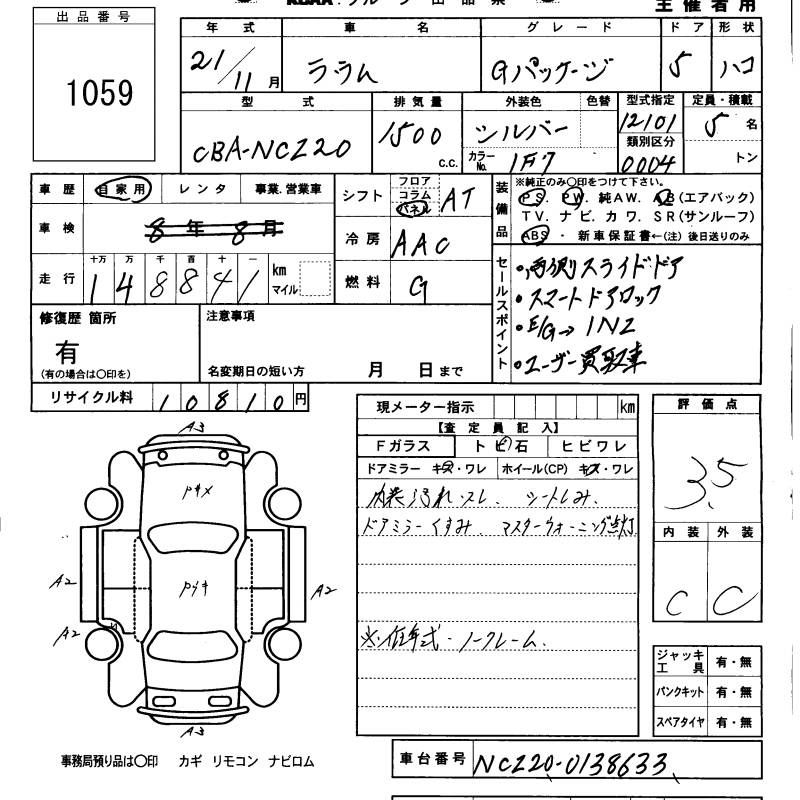 出品番号
1059
主催者用
年式 車名 グレード ドア 形状
21/11月 ラウム Gパッケージ 5 ハコ
型式 排気量 外装色 色替 型式指定 定員・積載
CBA-NCZ20 1500 c.c. シルバー 12101 5名
カラーNo. 1F7 類別区分 0004 トン
車歴 自家用 レンタ 事業.営業車
車検 8年8月
走行 十万 万 千 百 十 一
148841 km マイル
シフト フロア コラム パネル AT
冷房 AAC
燃料 G
装備品 ※純正のみ○印をつけて下さい。
PS. PW. 純AW. AB(エアバック)
TV. ナビ. カワ. SR(サンルーフ)
ABS・新車保証書←(注)後日送りのみ
セールスポイント
・両側スライドドア
・スマートドアロック
・E/G→1NZ
・ユーザー買取車
修復歴 箇所
有
(有の場合は○印を)
注意事項
名変期日の短い方 月 日まで
リサイクル料 10810円
A3
A2
A2
A2
A3
現メーター指示 km
【査定員記入】
Fガラス トビ石 ヒビワレ
ドアミラー キズ・ワレ ホイール(CP) キズ・ワレ
内装汚れ・スレ. シートしみ.
ドアミラーくすみ. マスターウォーニング点灯
※低年式・ノークレーム.
評価点
3.5
内装 外装
C C
ジャッキ工具 有・無
パンクキット 有・無
スペアタイヤ 有・無
事務局預り品は○印 カギ リモコン ナビロム
車台番号 NCZ20-0138633